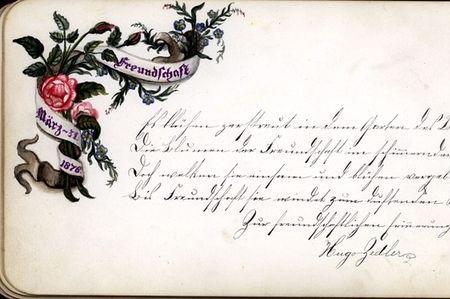 Freundschaft
März-31
1876
Es blühen zerstreut in dem Garten des L
Die Blumen der Freundschaft in schimmernder
Doch welken sie einsam und blühen vergeb
Bis Freundschaft sie windet zum duftenden
Zur freundschaftlichen Erinnerung
Hugo Zedler